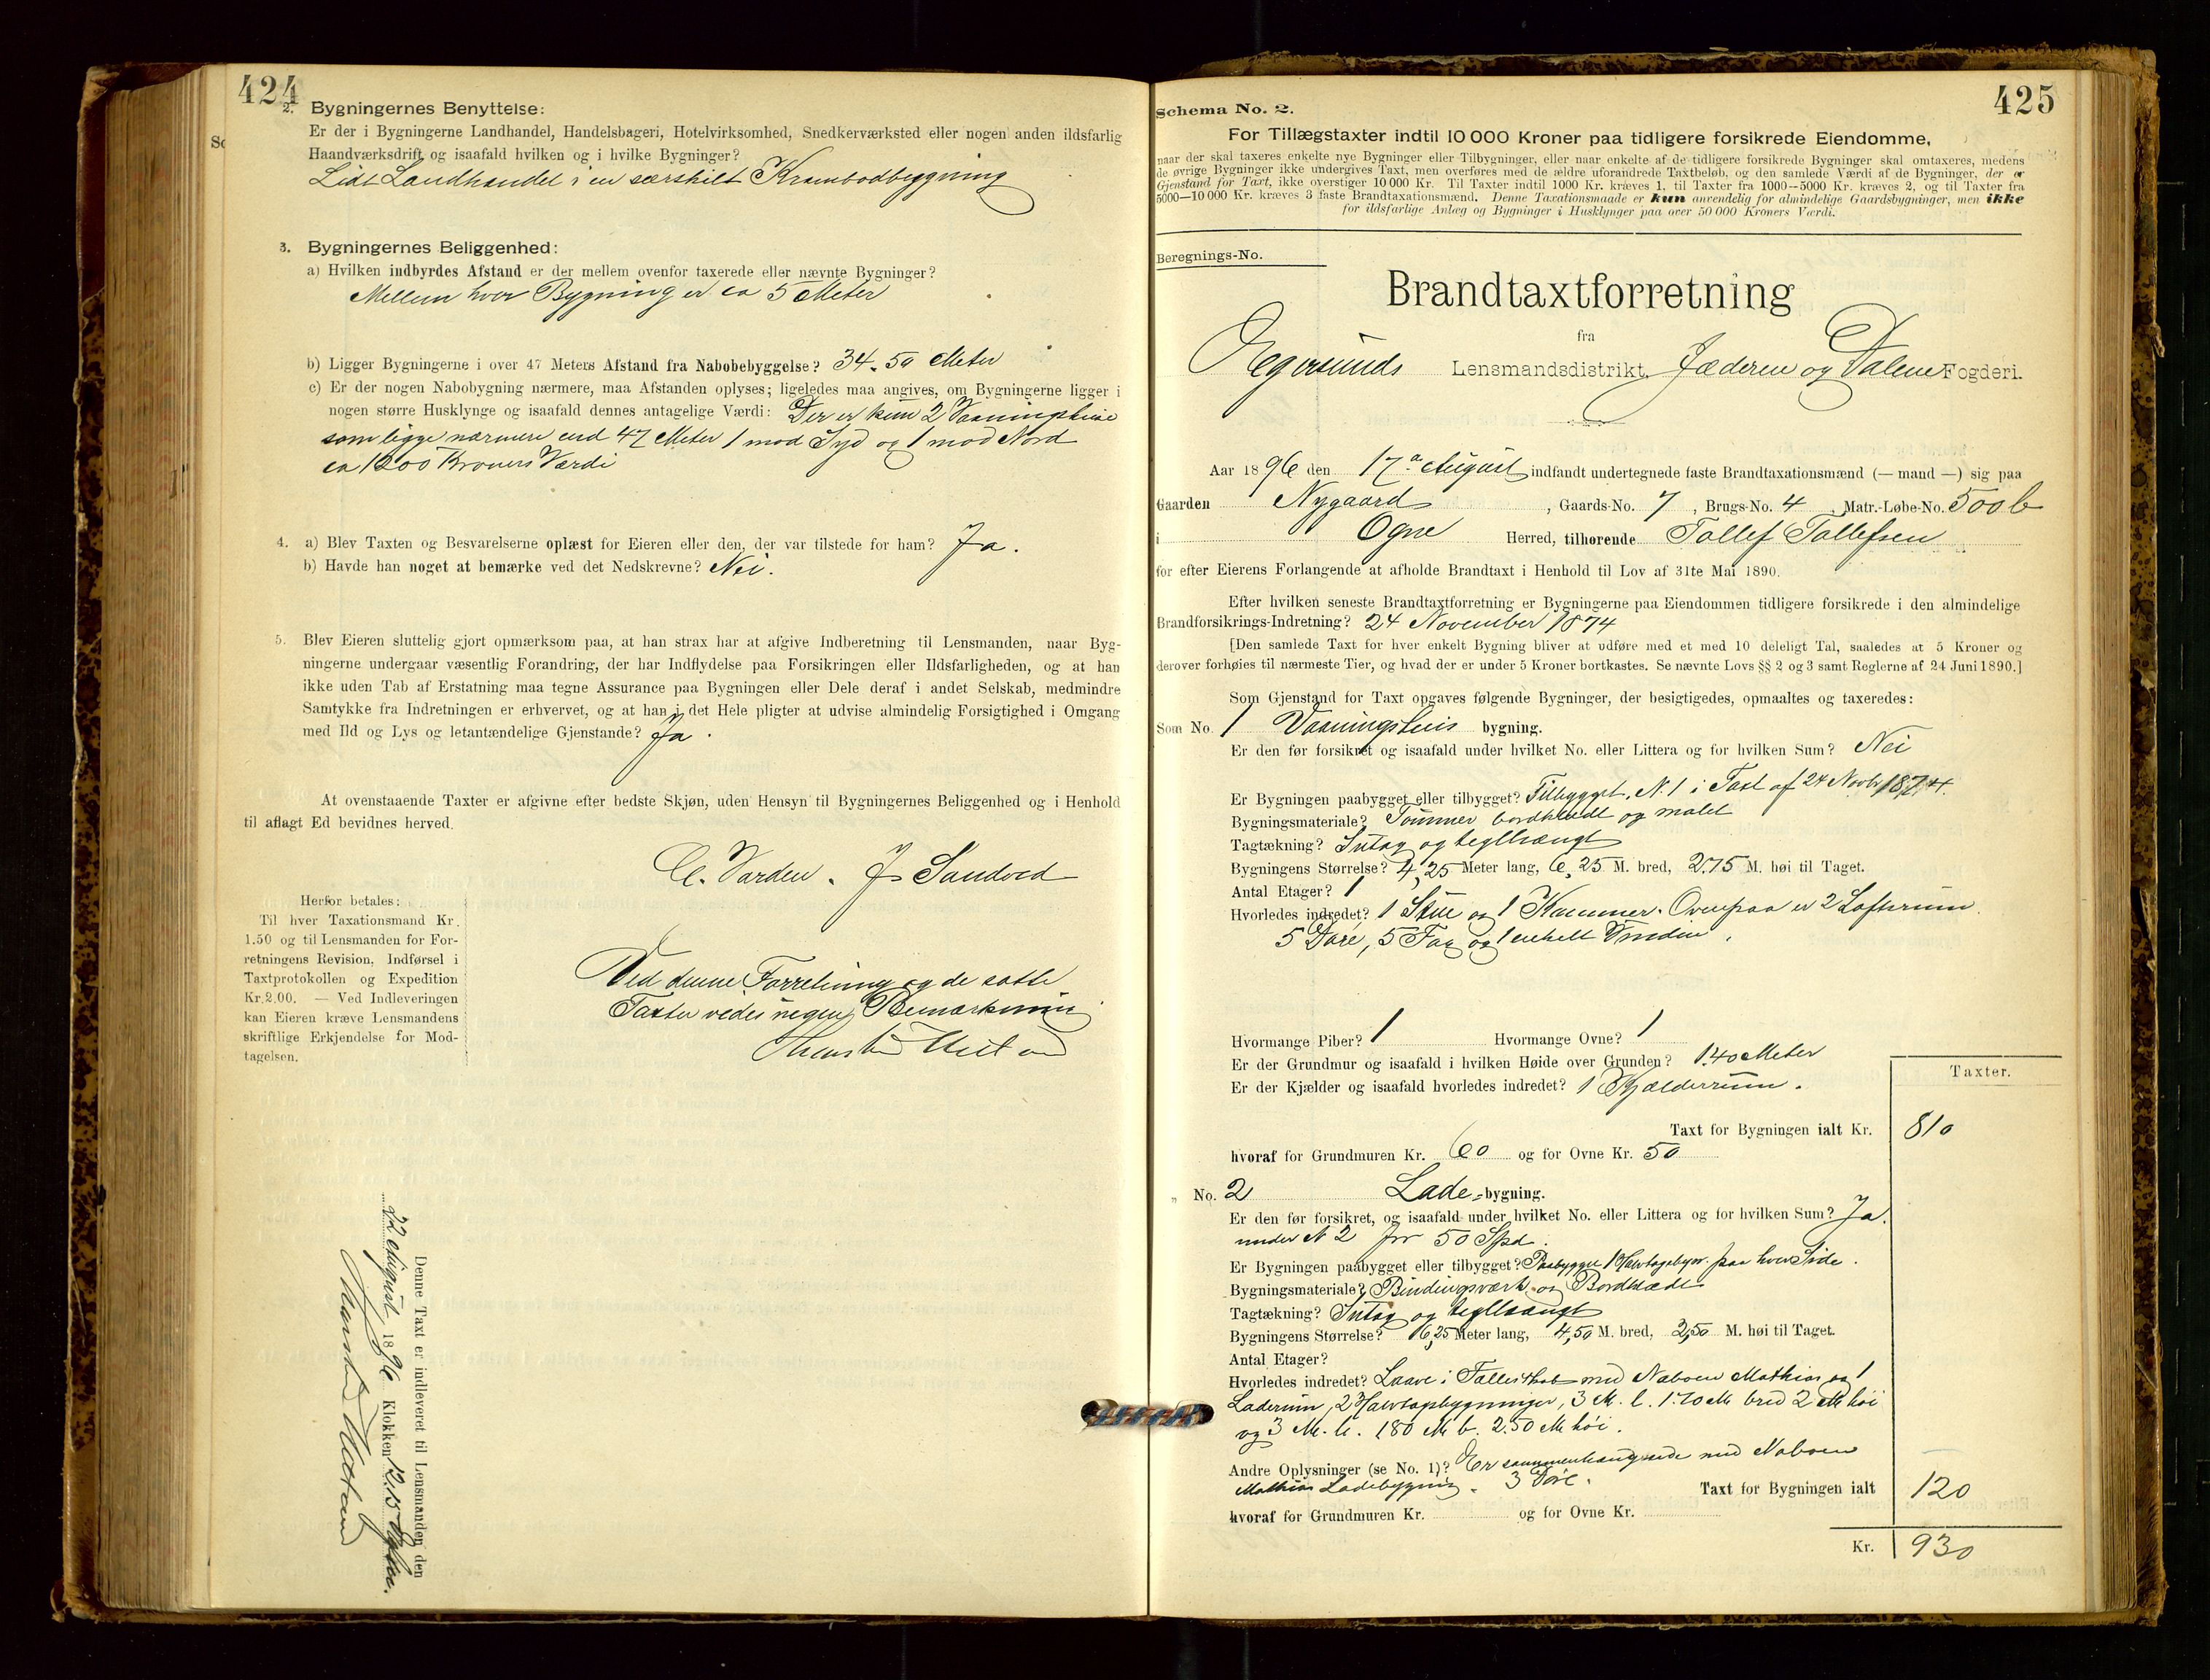 424
2. Bygningernes Benyttelse:
Er der i Bygningerne Landhandel, Handelsbageri, Hotelvirksomhed, Snedkerværksted eller nogen anden ildsfarlig
Haandværksdrift og isaafald hvilken og i hvilke Bygninger?
Lidt Landhandel i en særskilt Krambodbygning
3. Bygningernes Beliggenhed:
a) Hvilken indbyrdes Afstand er der mellem ovenfor taxerede eller nævnte Bygninger?
Mellem hver Bygning er ca 5 Meter
b) Ligger Bygningerne i over 47 Meters Afstand fra Nabobebyggelse? 34-50 Meter
c) Er der nogen Nabobygning nærmere, maa Afstanden oplyses; ligeledes maa angives, om Bygningerne ligger i
nogen større Husklynge og isaafald dennes antagelige Værdi: Der er kun 2 Vaaningshuse
som ligge nærmere end 47 Meter 1 mod Syd og 1 mod Nord
ca 1200 Kroners Værdi
4. a) Blev Taxten og Besvarelserne oplæst for Eieren eller den, der var tilstede for ham? Ja.
b) Havde han noget at bemærke ved det Nedskrevne? Nei.
5. Blev Eieren sluttelig gjort opmærksom paa, at han strax har at afgive Indberetning til Lensmanden, naar Byg-
ningerne undergaar væsentlig Forandring, der har Indflydelse paa Forsikringen eller Ildsfarligheden, og at han
ikke uden Tab af Erstatning maa tegne Assurance paa Bygningen eller Dele deraf i andet Selskab, medmindre
Samtykke fra Indretningen er erhvervet, og at han i det Hele pligter at udvise almindelig Forsigtighed i Omgang
med Ild og Lys og letantændelige Gjenstande? Ja.
At ovenstaaende Taxter er afgivne efter bedste Skjøn, uden Hensyn til Bygningernes Beliggenhed og i Henhold
til aflagt Ed bevidnes herved.
Varden. J Sandved
Herfor betales:
Til hver Taxationsmand Kr.
1.50 og til Lensmanden for For-
retningens Revision, Indførsel i
Taxtprotokollen og Expedition
Kr. 2.00. — Ved Indleveringen
kan Eieren kræve Lensmandens
skriftlige Erkjendelse for Mod-
tagelsen.
Ved denne Forretning og de satte
Taxter vedes ingen Bemærkning
Denne Taxt er indleveret til Lensmanden den
22 August 1896 Klokken 12,15
425
Schema No. 2.
For Tillægstaxter indtil 10 000 Kroner paa tidligere forsikrede Eiendomme,
naar der skal taxeres enkelte nye Bygninger eller Tilbygninger, eller naar enkelte af de tidligere forsikrede Bygninger skal omtaxeres, medens
de øvrige Bygninger ikke undergives Taxt, men overføres med de ældre uforandrede Taxtbeløb, og den samlede Værdi af de Bygninger, der er
Gjenstand for Taxt, ikke overstiger 10 000 Kr. Til Taxter indtil 1000 Kr. kræves 1, til Taxter fra 1000—5000 Kr. kræves 2, og til Taxter fra
5000—10 000 Kr. kræves 3 faste Brandtaxationsmænd. Denne Taxationsmaade er kun anvendelig for almindelige Gaardsbygninger, men ikke
for ildsfarlige Anlæg og Bygninger i Husklynger paa over 50 000 Kroners Værdi.
Beregnings-No.
Brandtaxtforretning
fra
Egersunds Lensmandsdistrikt, Jæderen og Dalene Fogderi.
Aar 1896 den 17de August indfandt undertegnede faste Brandtaxationsmænd (— mand —) sig paa
Gaarden Nygaard, Gaards-No. 7, Brugs-No. 4, Matr.-Løbe-No. 500b
i Ogne Herred, tilhørende Tollef Tollefsen
for efter Eierens Forlangende at afholde Brandtaxt i Henhold til Lov af 31te Mai 1890.
Efter hvilken seneste Brandtaxtforretning er Bygningerne paa Eiendommen tidligere forsikrede i den almindelige
Brandforsikrings-Indretning? 24 November 1874
[Den samlede Taxt for hver enkelt Bygning bliver at udføre med et med 10 deleligt Tal, saaledes at 5 Kroner og
derover forhøies til nærmeste Tier, og hvad der er under 5 Kroner bortkastes. Se nævnte Lovs §§ 2 og 3 samt Reglerne af 24 Juni 1890.]
Som Gjenstand for Taxt opgaves følgende Bygninger, der besigtigedes, opmaaltes og taxeredes:
Som No. 1 Vaaningshus bygning.
Er den før forsikret og isaafald under hvilket No. eller Littera og for hvilken Sum? Nei
Er Bygningen paabygget eller tilbygget? Tilbygget, N. 1 i Taxt af 24 Novbr 1874.
Bygningsmateriale? Tømmer bordklædt og malet
Tagtækning? Sutag og teglhængt
Bygningens Størrelse? 4,25 Meter lang, 6,25 M. bred, 2.75 M. høi til Taget.
Antal Etager? 1
Hvorledes indredet? 1 Stue og 1 Kammer. Ovenpaa er 2 Loftsrum.
5 Døre, 5 Fag og 1 enkelt Vindue.
Hvormange Piber? 1 Hvormange Ovne? 1
Er der Grundmur og isaafald i hvilken Høide over Grunden? 1.40 Meter
Er der Kjælder og isaafald hvorledes indredet? 1 Kjælderrum.
Taxter.
Taxt for Bygningen ialt Kr. 810
hvoraf for Grundmuren Kr. 60 og for Ovne Kr. 50
" No. 2 Lade-bygning.
Er den før forsikret, og isaafald under hvilket No. eller Littera og for hvilken Sum? Ja.
under N 2 for 50 Spd.
Er Bygningen paabygget eller tilbygget? Paabygget 1 Halvtagsbygn. paa hver Side.
Bygningsmateriale? Bindingsværk og Bordklædt
Tagtækning? Sutag og teglhængt
Bygningens Størrelse? 6,25 Meter lang, 4,50 M. bred, 3,50 M. høi til Taget.
Antal Etager?
Hvorledes indredet? Laave i Fællesskab med Naboen Mathias og 1
Laderum, 2 Halvtagsbygninger, 3 M. l. 1.70 M bred 2 M høi
og 3 M. l. 1.80 M b. 2.50 M høi.
Andre Oplysninger (se No. 1)? Er sammenhængende med Naboen
Mathias Ladebygning. 3 Døre. Taxt for Bygningen ialt 120
hvoraf for Grundmuren Kr. og for Ovne Kr.
Kr. 930